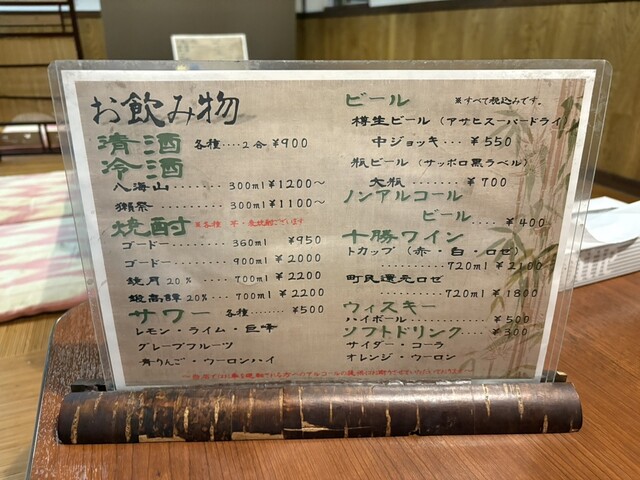 お飲み物
清酒 各種‥‥２合 ¥900
冷酒
八海山‥‥‥‥ 300ml ¥1200～
獺祭‥‥‥‥ 300ml ¥1100～
焼酎 ※各種 芋・麦焼酎ございます
ゴードー‥‥‥‥ 360ml ¥950
ゴードー‥‥‥‥ 900ml ¥2000
鏡月20%‥‥ 700ml ¥2200
鍛高譚20%‥ 700ml ¥2200
サワー 各種‥‥‥ ¥500
レモン・ライム・巨峰
グレープフルーツ
青りんご・ウーロンハイ
ビール ※すべて税込みです。
樽生ビール（アサヒスーパードライ）
中ジョッキ‥‥ ¥550
瓶ビール（サッポロ黒ラベル）
大瓶‥‥‥‥ ¥700
ノンアルコール
ビール‥‥ ¥400
十勝ワイン
トカップ（赤・白・ロゼ）
‥‥‥‥720ml ¥2100
町民還元ロゼ
‥‥‥‥720ml ¥1800
ウィスキー
ハイボール‥‥‥‥ ¥500
ソフトドリンク‥‥‥ ¥300
サイダー・コーラ
オレンジ・ウーロン